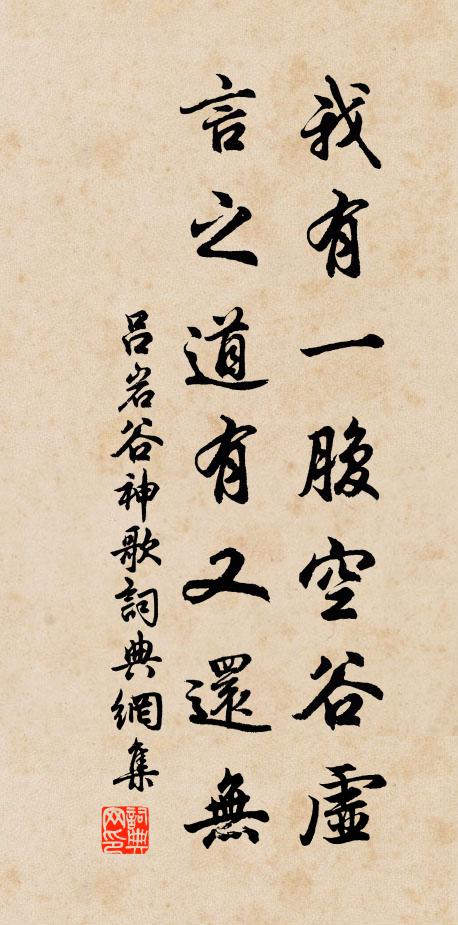 我有一腹空谷虛
言之道有又還無
呂岩谷神歌詞典網集
詞典網印